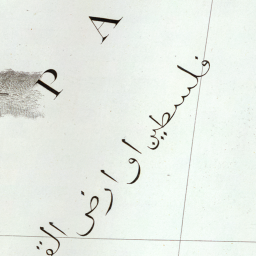 P A
فلسطين او ارض الق